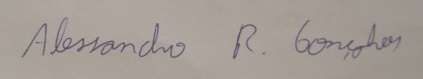 Alessandro R. Gonçalves